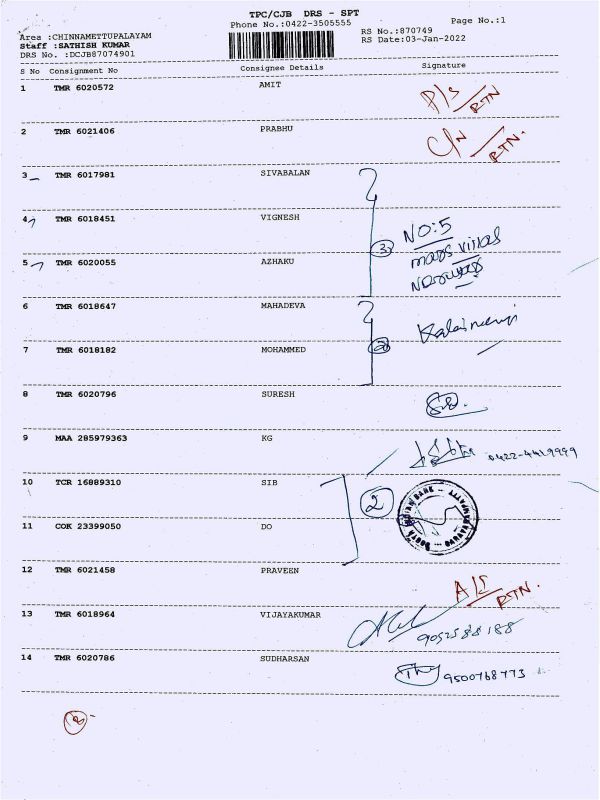 TPC/CJB DRS - SPT
Phone No.:0422-3505555
Page No.:1
Area :CHINNAMETTUPALAYAM
Staff :SATHISH KUMAR
DRS No. :DCJB87074901
RS No.:870749
RS Date:03-Jan-2022
S No Consignment No Consignee Details Signature
1 TMR 6020572 AMIT P/S/RTN
2 TMR 6021406 PRABHU C/N/RTN.
3 TMR 6017981 SIVABALAN
4 TMR 6018451 VIGNESH 3 NO:5
5 TMR 6020055 AZHAKU
6 TMR 6018647 MAHADEVA
7 TMR 6018182 MOHAMMED 2
8 TMR 6020796 SURESH
9 MAA 285979363 KG
10 TCR 16889310 SIB 2
11 COK 23399050 DO
12 TMR 6021458 PRAVEEN RTN.
13 TMR 6018964 VIJAYAKUMAR
14 TMR 6020786 SUDHARSAN 9500768773